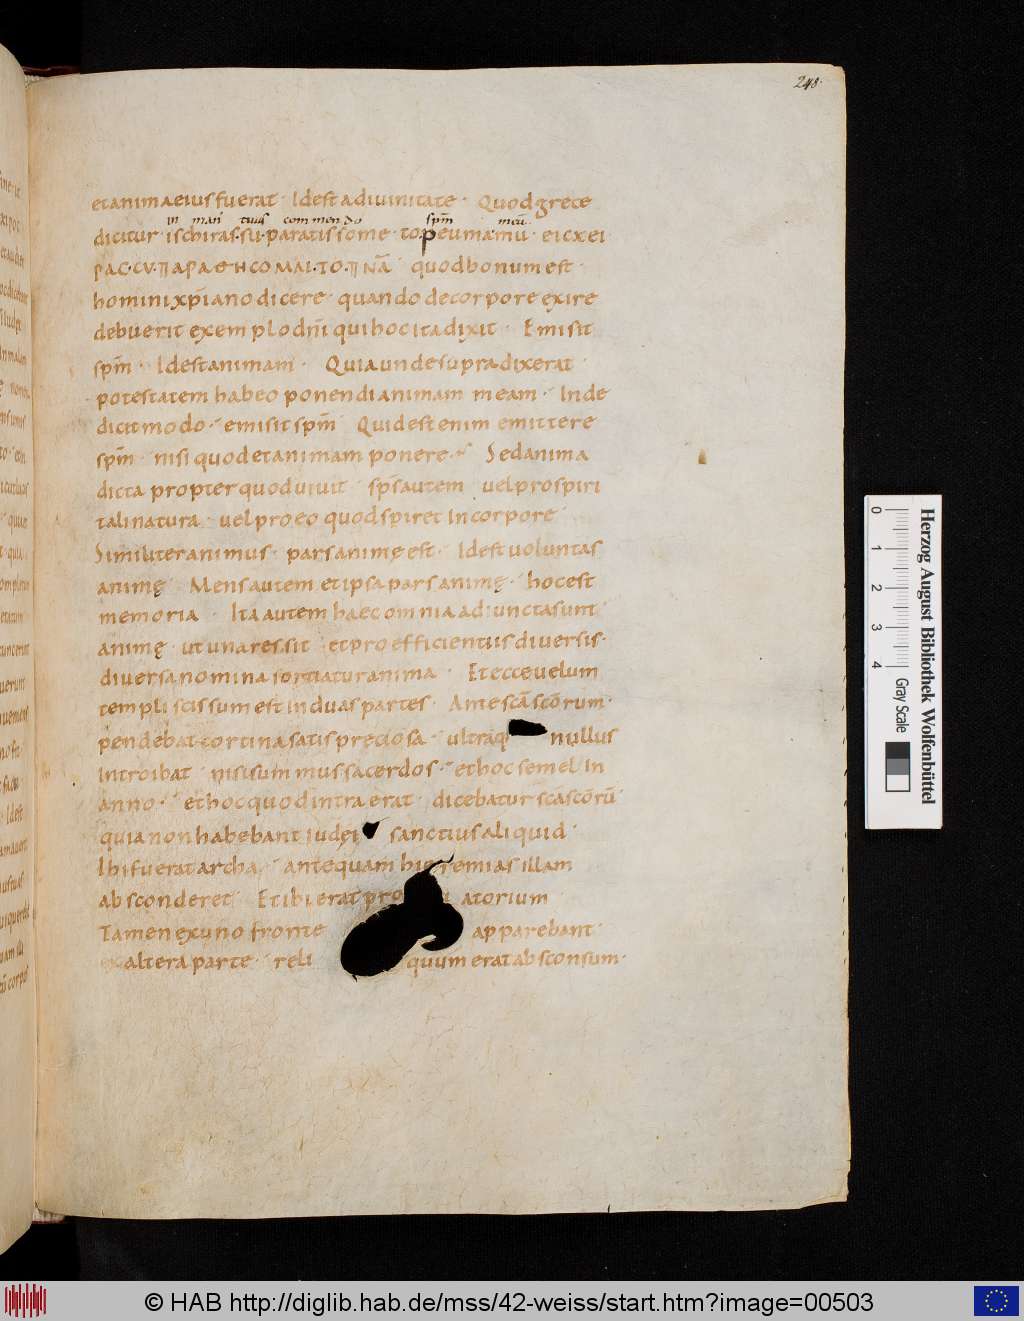 248.
et anima eius fuerat · Id est a diuinitate · Quod grece
in man tuas commendo spm̄ meū
dicitur · ischiras·su·paratissome · to peuma mu · eic xei
ΡΑC·CΥ·ΠΑΡΑΘΗCΟΜΑΙ·ΤΟ·ΠΝ̄Α quod bonum est ·
homini xp̄iano dicere · quando de corpore exire
debuerit exemplo dn̄i qui hoc ita dixit · Emisit
spm̄ · Id est animam · Quia unde supra dixerat ·
potestatem habeo ponendi animam meam · Inde
dicit modo · emisit spm̄ Quid est enim emittere
spm̄ · nisi quod et animam ponere · Sed anima
dicta propter quod uiuit sps̄ autem uel pro spiri
tali natura · uel pro eo quod spiret In corpore
Similiter animus · pars animę est · Id est uoluntas
animę Mens autem et ipsa pars animę · hoc est
memoria · Ita autem haec omnia adiuncta sunt
animę ut una res sit et pro efficientiis diuersis·
diuersa nomina sortiatur anima · Et ecce uelum
templi scissum est in duas partes · Ante scā scōrum·
pendebat cortina satis preciosa · ultraq nullus
Introibat nisi summus sacerdos · et hoc semel In
anno · et hoc quod intra erat · dicebatur scā scōrū
quia non habebant iudei sanctius aliquid ·
Ibi fuerat archa · antequam hieremias illam
absconderet Et ibi erat pro atorium
Tamen ex uno fronte apparebant ·
ex altera parte · reli quum erat absconsum·
Herzog August Bibliothek Wolfenbüttel
0 1 2 3 4 Gray Scale
© HAB http://diglib.hab.de/mss/42-weiss/start.htm?image=00503